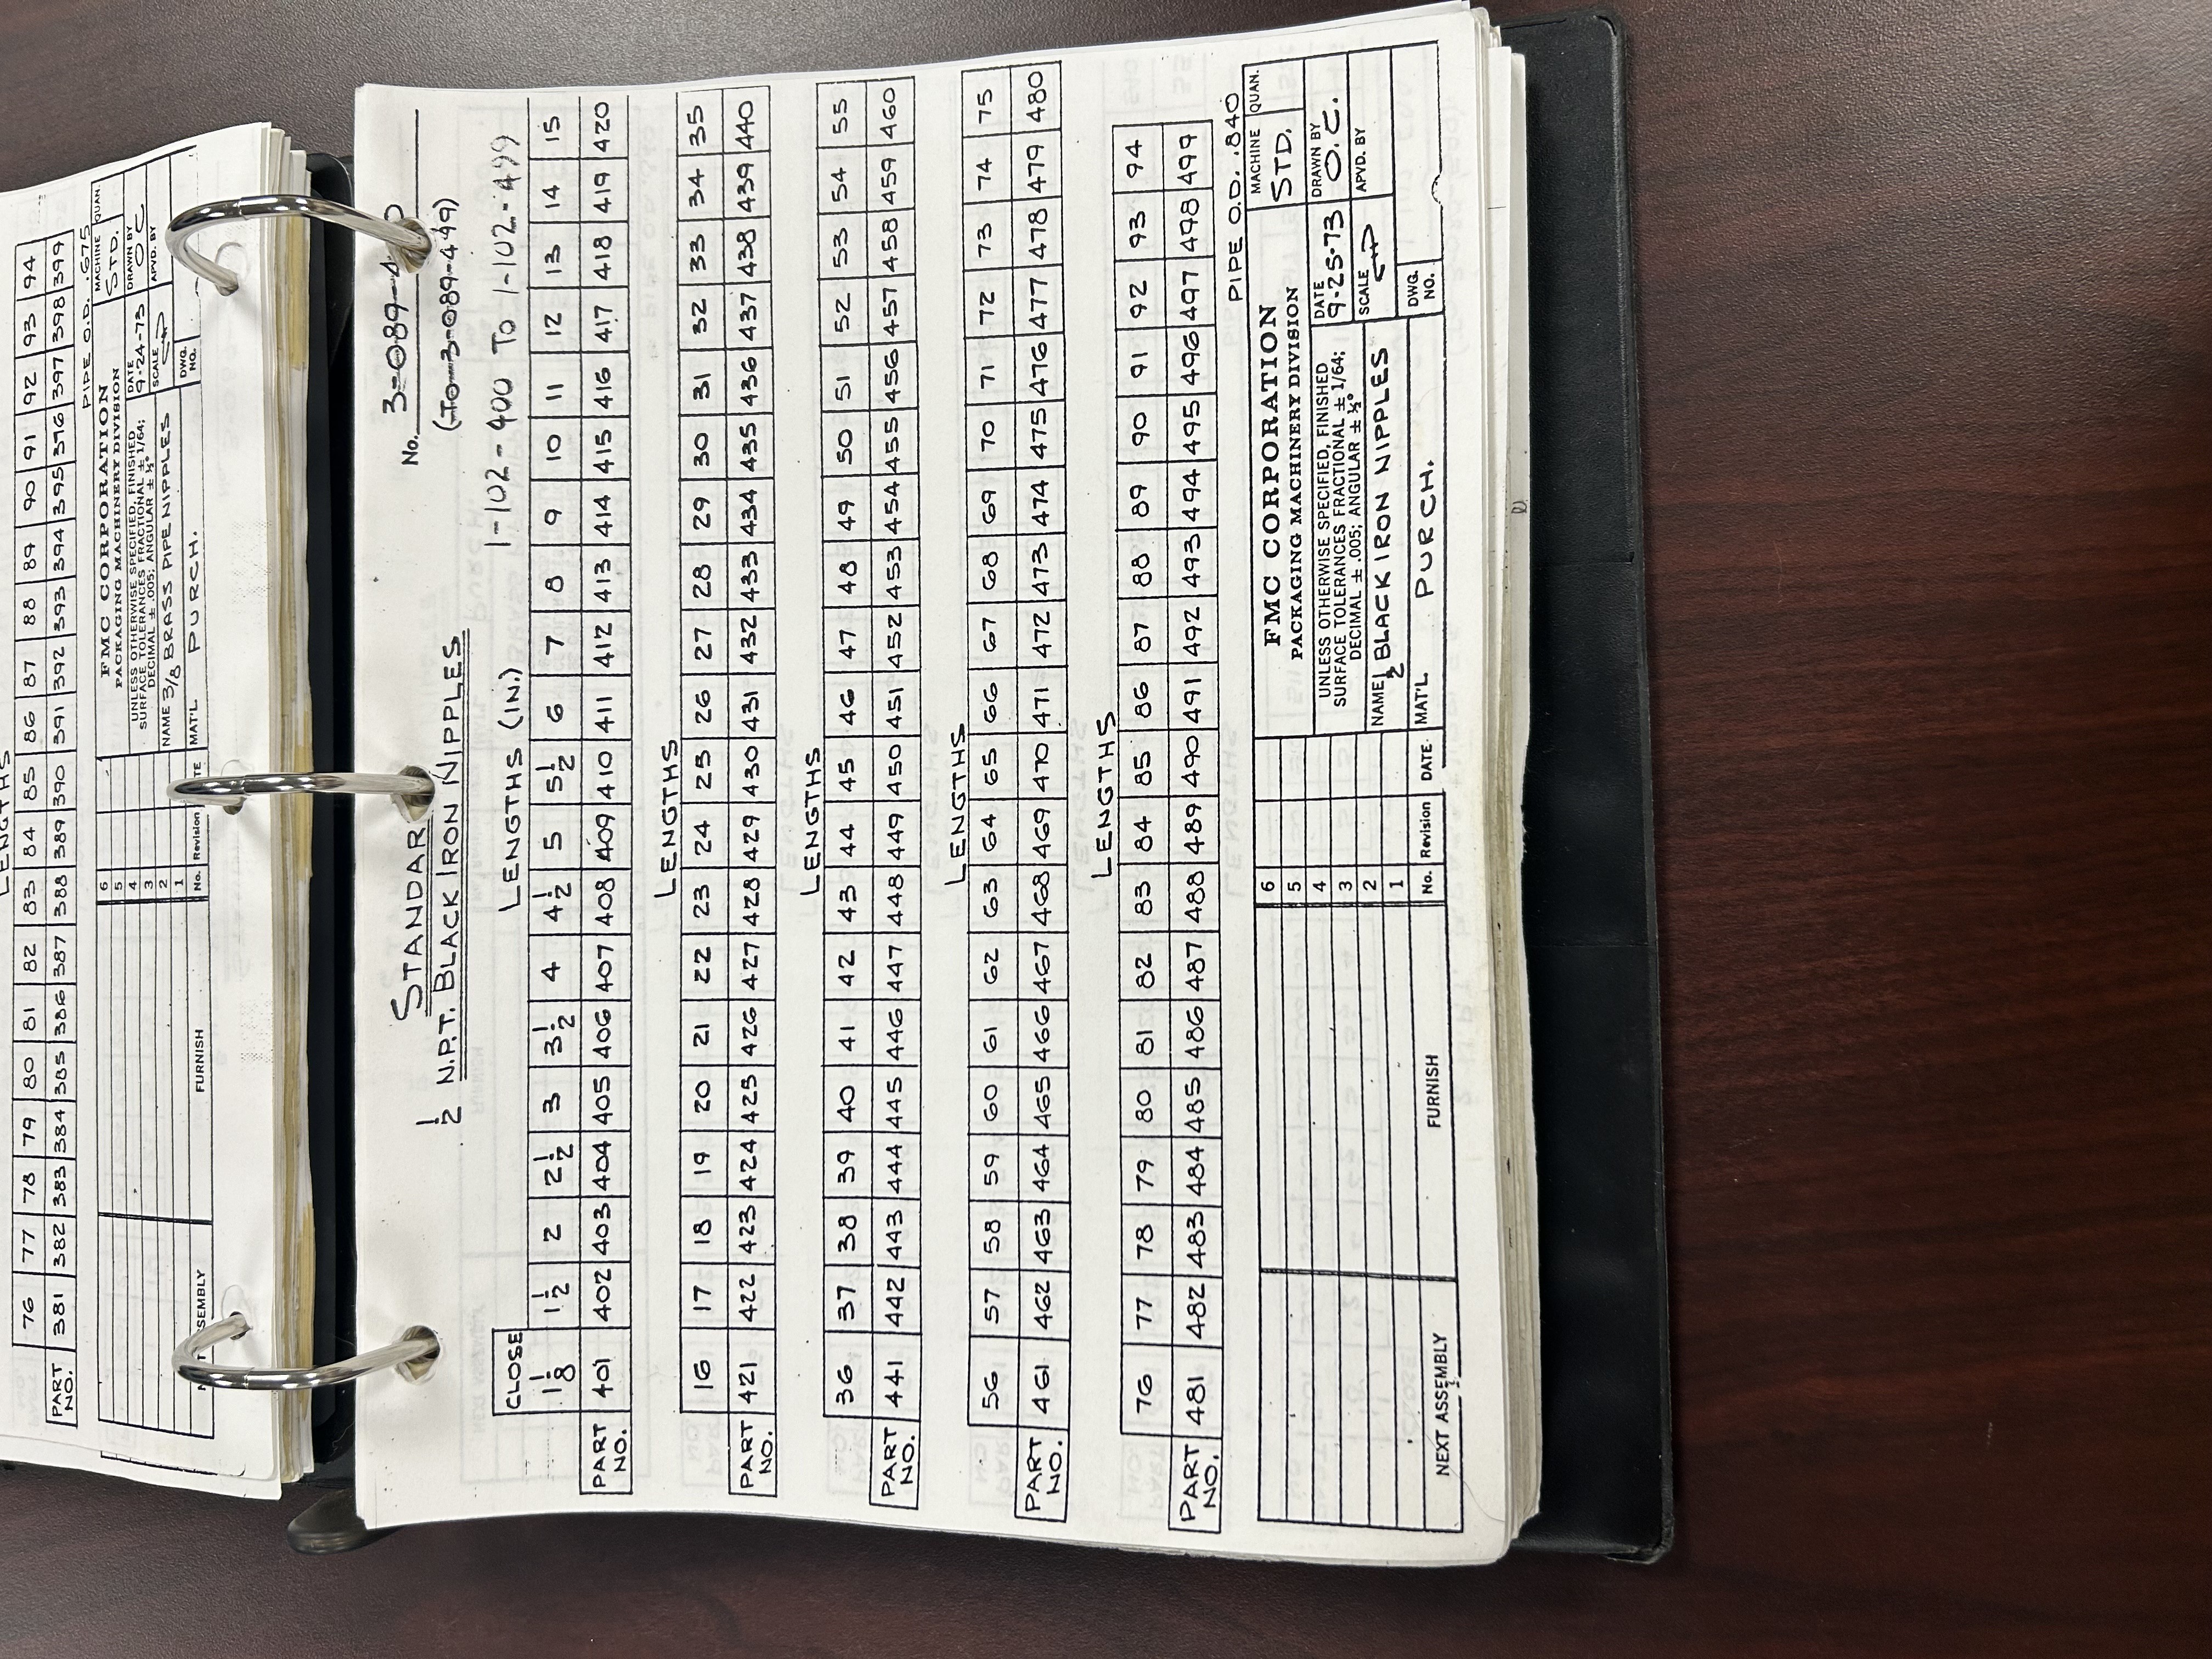 LENGTHS
76 77 78 79 80 81 82 83 84 85 86 87 88 89 90 91 92 93 94
PART NO. 381 382 383 384 385 386 387 388 389 390 391 392 393 394 395 396 397 398 399
PIPE O.D. .675
6
5
4
3
2
1
FMC CORPORATION
PACKAGING MACHINERY DIVISION
MACHINE STD.
QUAN.
UNLESS OTHERWISE SPECIFIED, FINISHED
SURFACE TOLERANCES FRACTIONAL ± 1/64;
DECIMAL ± .005; ANGULAR ± ½°
DATE 9-24-73
DRAWN BY O C
NAME 3/8 BRASS PIPE NIPPLES
SCALE
APVD. BY
FURNISH No. Revision
MAT'L PURCH.
DWG. NO.
STANDAR
½ N.P.T. BLACK IRON NIPPLES
No. 3-089-4
(TO 3-089-499)
1-102-400 TO 1-102-499
CLOSE
LENGTHS (IN.)
1⅛ 1½ 2 2½ 3 3½ 4 4½ 5 5½ 6 7 8 9 10 11 12 13 14 15
PART NO. 401 402 403 404 405 406 407 408 409 410 411 412 413 414 415 416 417 418 419 420
LENGTHS
16 17 18 19 20 21 22 23 24 25 26 27 28 29 30 31 32 33 34 35
PART NO. 421 422 423 424 425 426 427 428 429 430 431 432 433 434 435 436 437 438 439 440
LENGTHS
36 37 38 39 40 41 42 43 44 45 46 47 48 49 50 51 52 53 54 55
PART NO. 441 442 443 444 445 446 447 448 449 450 451 452 453 454 455 456 457 458 459 460
LENGTHS
56 57 58 59 60 61 62 63 64 65 66 67 68 69 70 71 72 73 74 75
PART NO. 461 462 463 464 465 466 467 468 469 470 471 472 473 474 475 476 477 478 479 480
LENGTHS
76 77 78 79 80 81 82 83 84 85 86 87 88 89 90 91 92 93 94
PART NO. 481 482 483 484 485 486 487 488 489 490 491 492 493 494 495 496 497 498 499
PIPE O.D. .840
6
5
4
3
2
1
FMC CORPORATION
PACKAGING MACHINERY DIVISION
MACHINE STD.
QUAN.
UNLESS OTHERWISE SPECIFIED, FINISHED
SURFACE TOLERANCES FRACTIONAL ± 1/64;
DECIMAL ± .005; ANGULAR ± ½°
DATE 9-25-73
DRAWN BY O.C.
NAME ½ BLACK IRON NIPPLES
SCALE
APVD. BY
NEXT ASSEMBLY FURNISH No. Revision DATE
MAT'L PURCH.
DWG. NO.